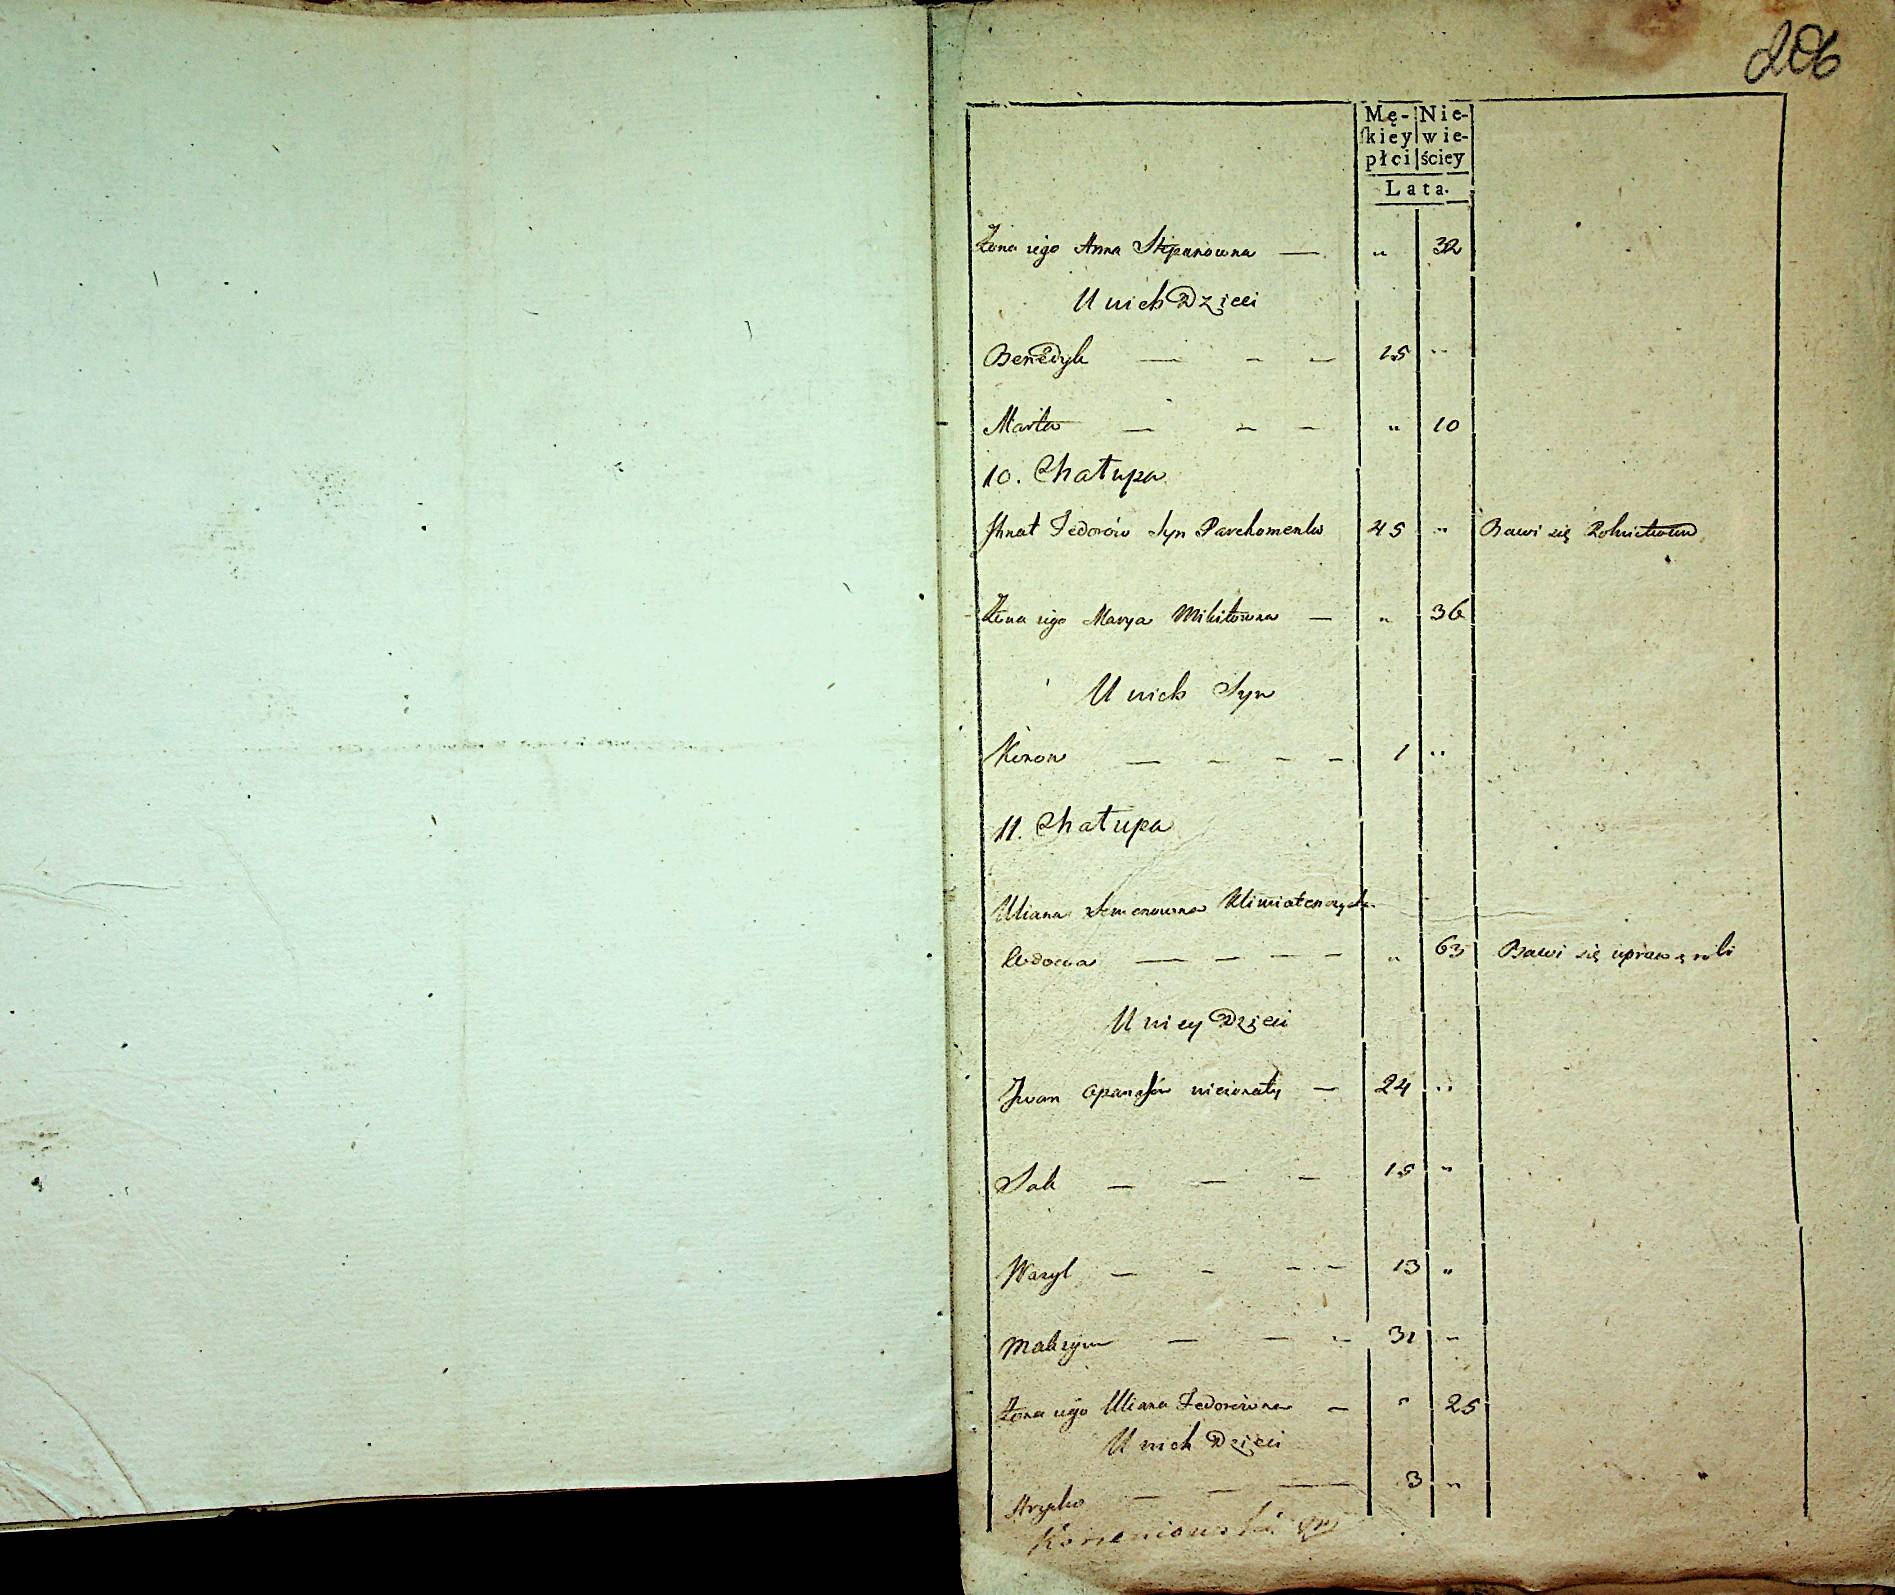 206
Mę- Nie-
ſkiey wie-
płci ściey
Lata.
Żona iego Anna Stepanowna — „ 32
U nich Dzieci
Benedyk — — — 15 „
Marta — — — „ 10
10. Chałupa
Ihnat Fedorów Syn Parchomenko 45 „ Bawi się Rolnictwem
Żona iego Marya Mikitowna — „ 36
U nich Syn
Konon — — — — 1 „
11. Chałupa
Uliana Semenowna
Wdowa — — — — „ 63 Bawi się uprawą roli
U niey Dzieci
Iwan Apanasów nieżonaty — 24 „
Sak — — — 15 „
Wasyl — — — — 13 „
Maksym — — — 31 „
Żona iego Uliana Fedorówna — „ 25
U nich Dzieci
Hryćko — — — 3 „